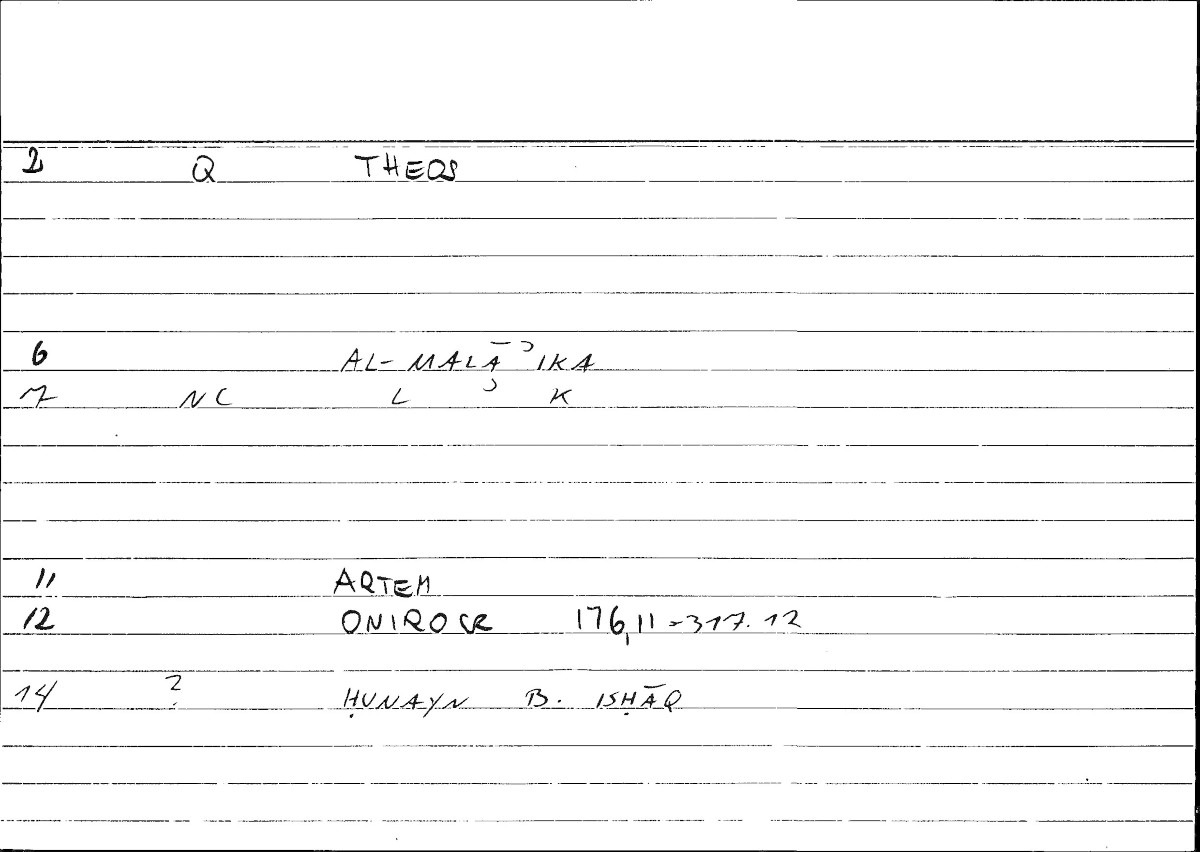 2 Q THEOS
6 AL-MALĀʾIKA
7 NC L ʾ K
11 ARTEM
12 ONIROCR 176,11=317.12
14 ? ḤUNAYN B. ISḤĀQ